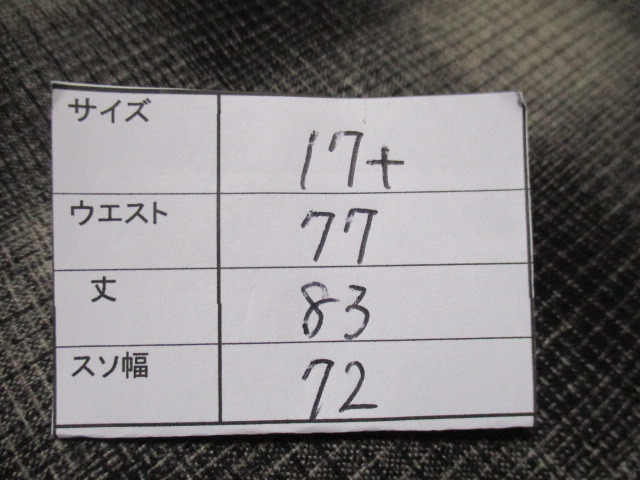 サイズ 17+
ウエスト 77
丈 83
スソ幅 72